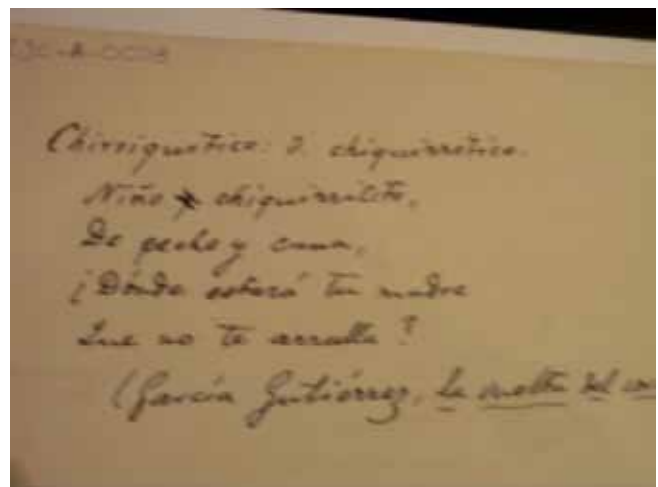 Chirriquitico: V. chiquirritico.
Niño chiquirritito,
De pecho y cuna,
¿Dónde estará tu madre
Que no te arrulla?
(García Gutiérrez, La vuelta del